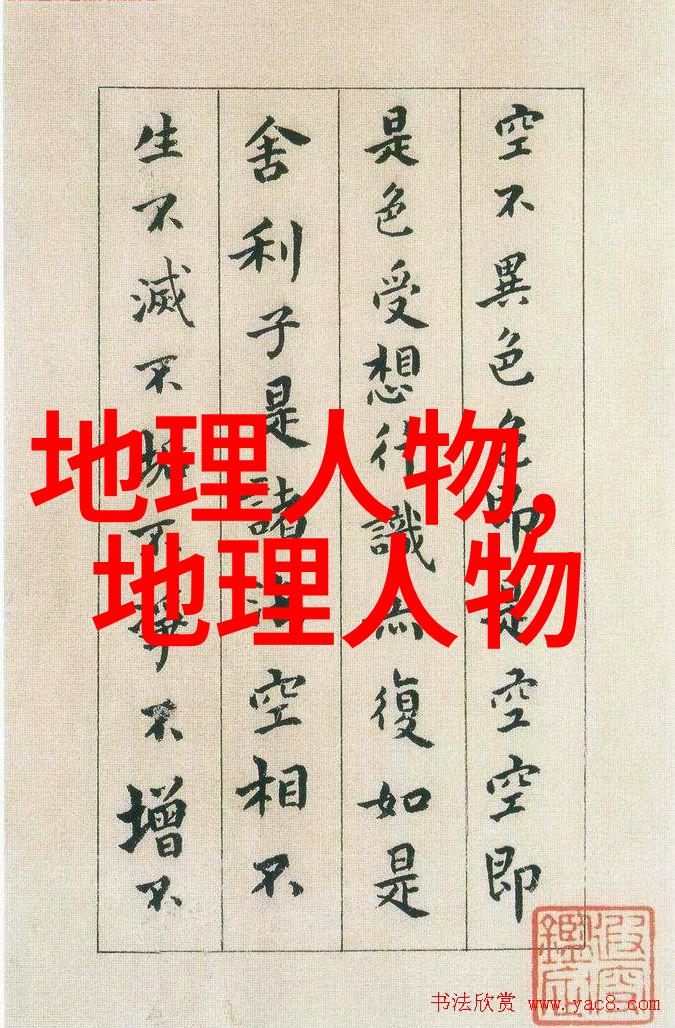 空不異色色即是空空即
是色受想行識亦復如是
舍利子是諸法空相不
生不滅不垢不淨不增不
地理人物,
地理人物
书法欣赏 www.yac8.com